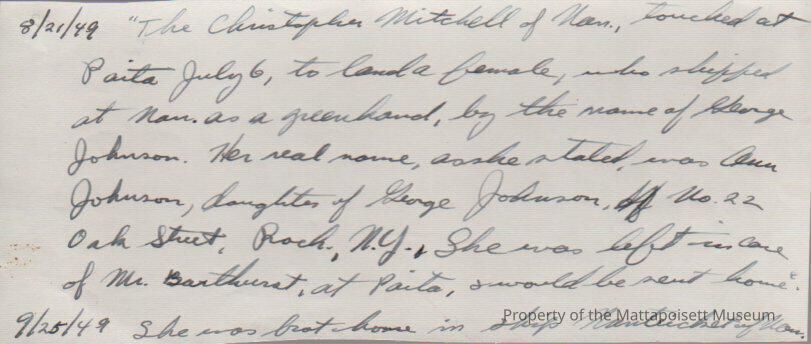 8/21/49 "The Christopher Mitchell of Nan., touched at
Paita July 6, to land a female, who shipped
at Nan. as a greenhand, by the name of George
Johnson. Her real name, as she stated, was Ann
Johnson, daughter of George Johnson, of No. 22
Oak Street, Roch., N.Y., She was left in care
of Mr. Barthurst, at Paita, & would be sent home".
9/25/49 She was brot home in ship Nantucket of Nan.
Property of the Mattapoisett Museum